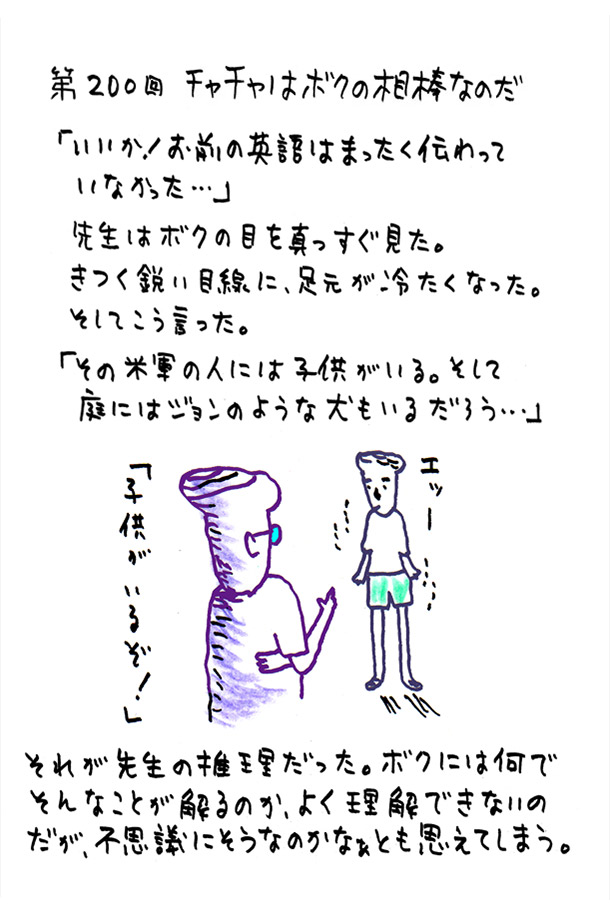 第200回 チャチャはボクの相棒なのだ
「いいか!お前の英語はまったく伝わって
いなかった…」
先生はボクの目を真っすぐ見た。
きつく鋭い目線に、足元が冷たくなった。
そしてこう言った。
「その米軍の人には子供がいる。そして
庭にはジョンのような犬もいるだろう…」
エッー
「子供がいるぞ!」
それが先生の推理だった。ボクには何で
そんなことが解るのか、よく理解できないの
だが、不思議にそうなのかなぁとも思えてしまう。